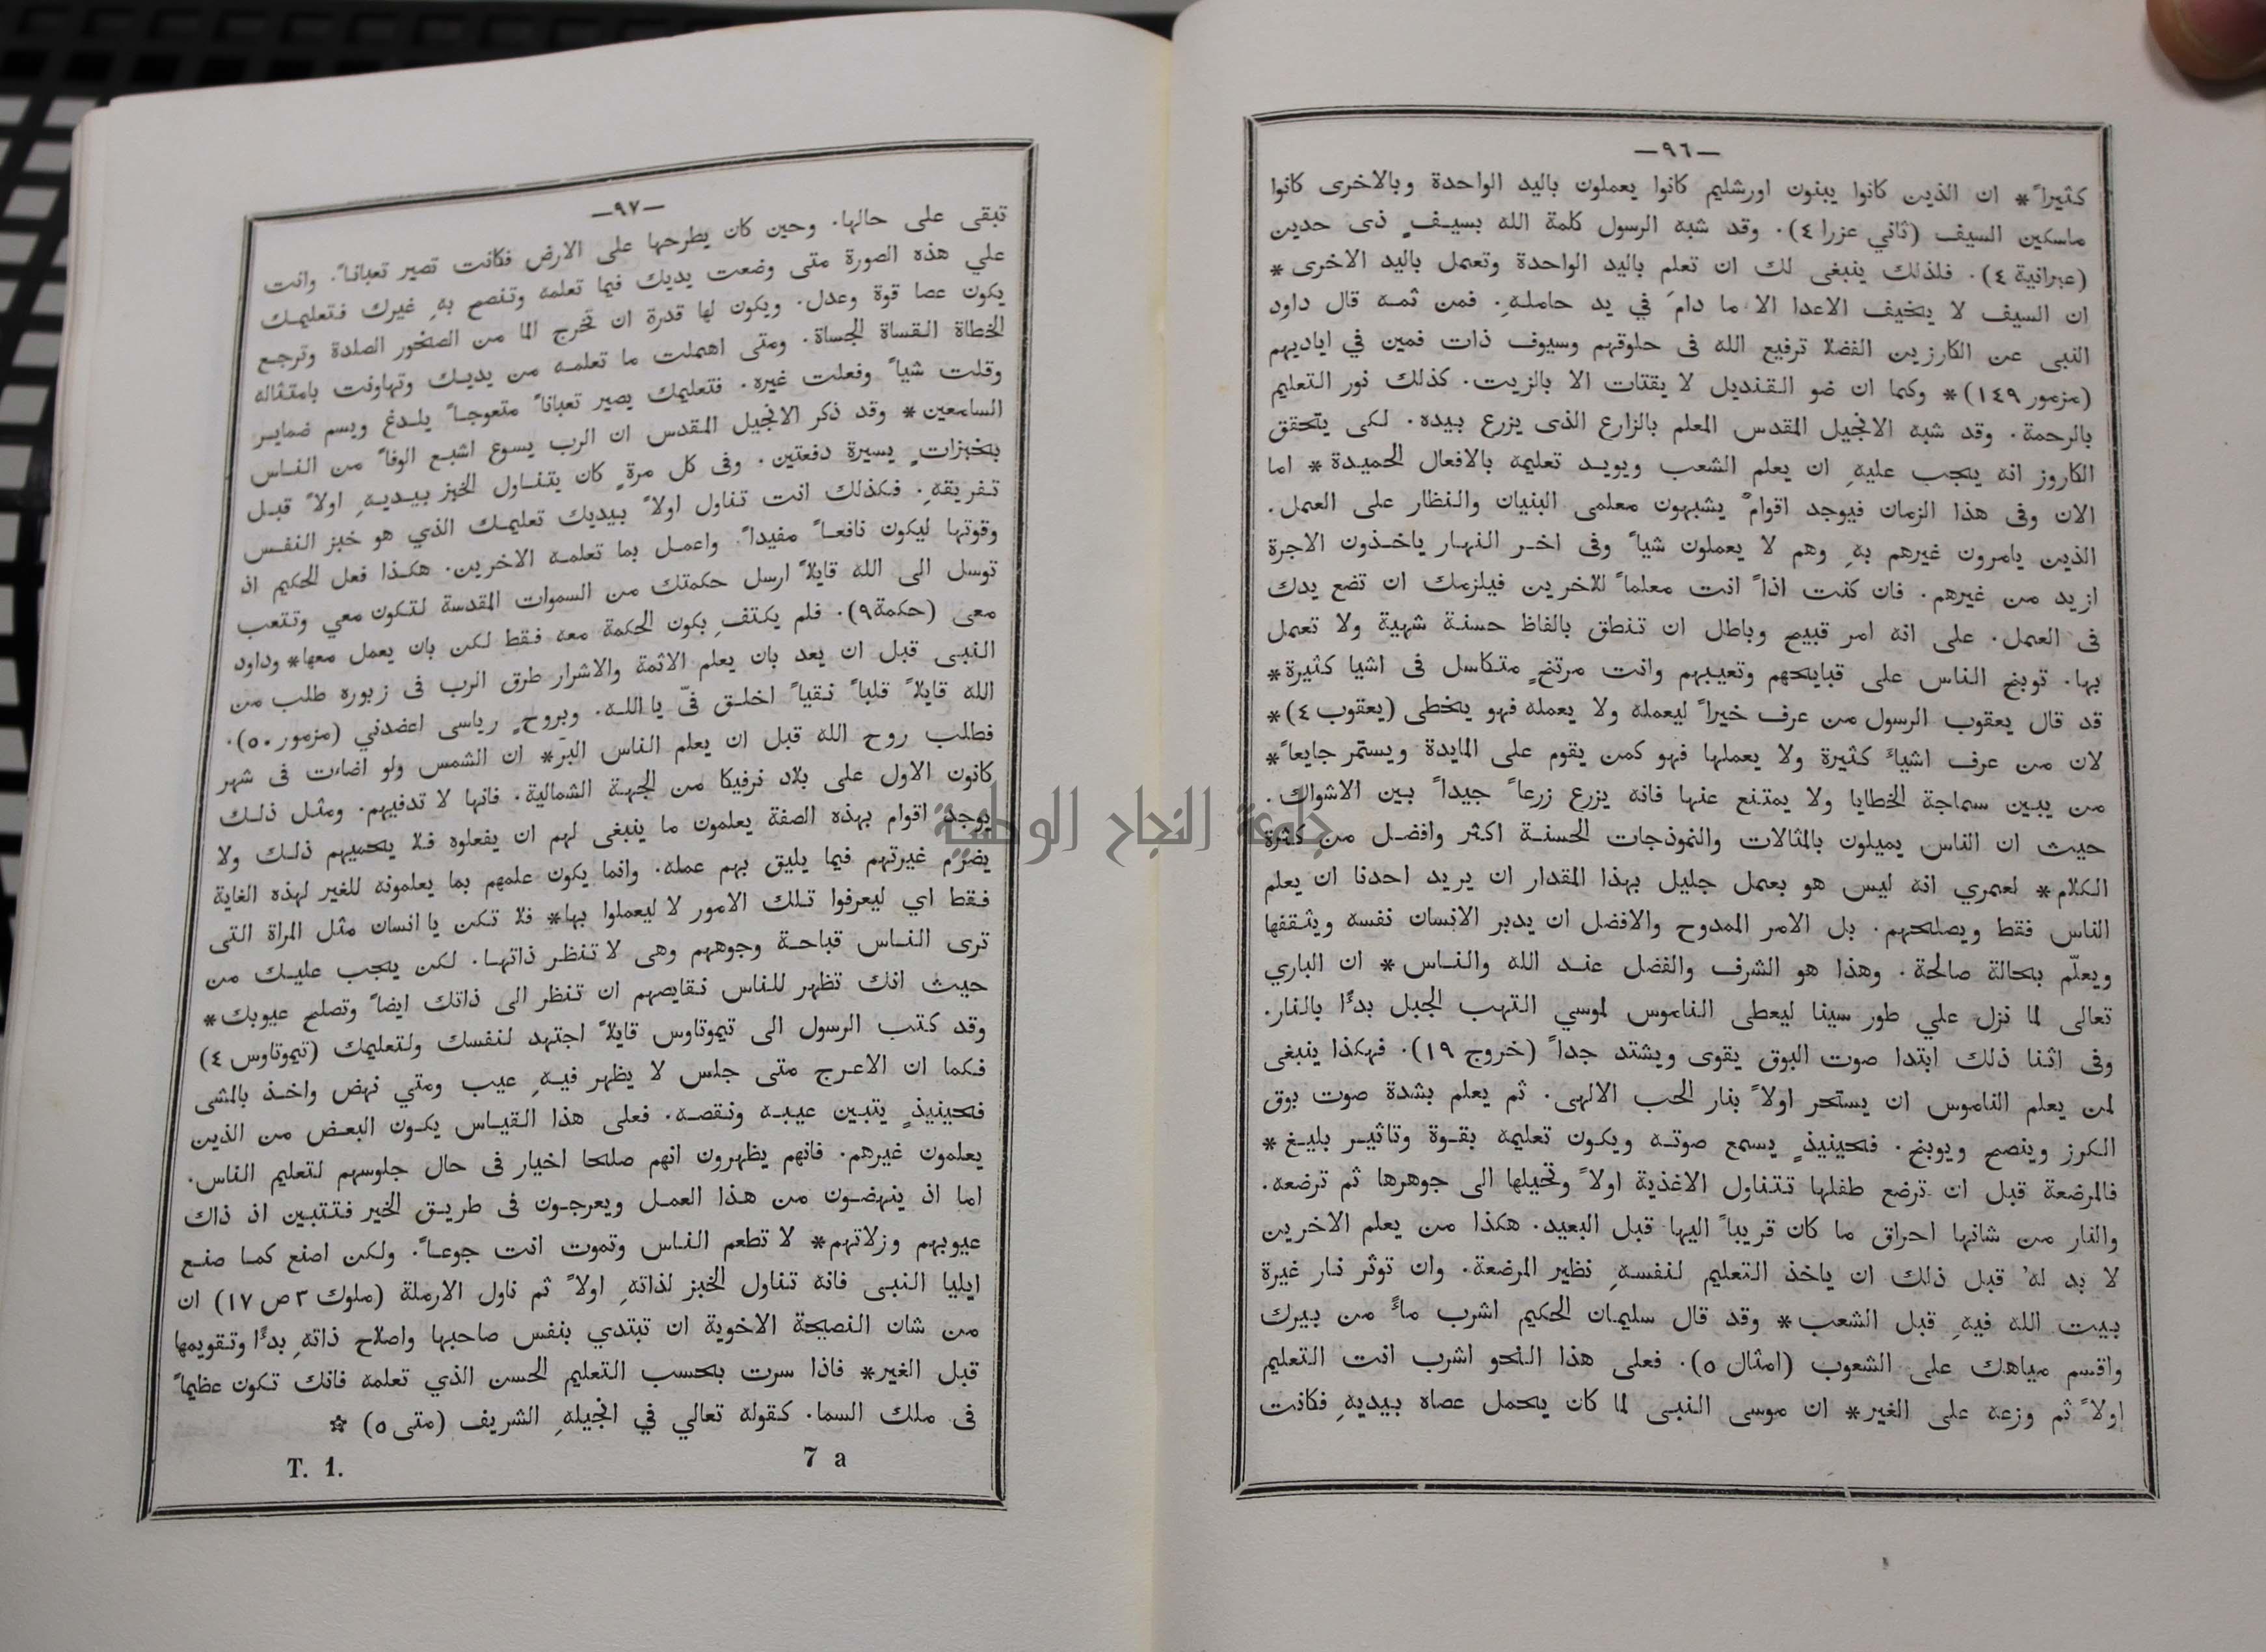 —٩٦—
كثيراً* ان الذين كانوا يبنون اورشليم كانوا يعملون باليد الواحدة وبالاخرى كانوا
ماسكين السيف (ثاني عزرا ٤). وقد شبه الرسول كلمة الله بسيفٍ ذى حدين
(عبرانية ٤). فلذلك ينبغى لك ان تعلم باليد الواحدة وتعمل باليد الاخرى*
ان السيف لا يخيف الاعدا الا ما دامَ في يد حاملهِ. فمن ثمه قال داود
النبى عن الكارزين الفضلا ترفيع الله فى حلوقهم وسيوف ذات فمين في اياديهم
(مزمور ١٤٩)* وكما ان ضو القنديل لا يقتات الا بالزيت. كذلك نور التعليم
بالرحمة. وقد شبه الانجيل المقدس المعلم بالزارع الذى يزرع بيده. لكى يتحقق
الكاروز انه يجب عليهِ ان يعلم الشعب ويويد تعليمه بالافعال الحميدة* اما
الان وفى هذا الزمان فيوجد اقوامٌ يشبهون معلمى البنيان والنظار على العمل.
الذين يامرون غيرهم بهِ وهم لا يعملون شياً وفى اخر النهار ياخذون الاجرة
ازيد من غيرهم. فان كنت اذاً انت معلماً للاخرين فيلزمك ان تضع يدك
فى العمل. على انه امر قبيح وباطل ان تنطق بالفاظ حسنة شهية ولا تعمل
بها. توبخ الناس على قبايحهم وتعيبهم وانت مرتخٍ متكاسل فى اشيا كثيرة*
قد قال يعقوب الرسول من عرف خيراً ليعمله ولا يعمله فهو يخطى (يعقوب ٤)*
لان من عرف اشياءَ كثيرة ولا يعملها فهو كمن يقوم على المايدة ويستمر جايعاً*
من يبين سماجة الخطايا ولا يمتنع عنها فانه يزرع زرعاً جيداً بين الاشواك.
حيث ان الناس يميلون بالمثالات والنموذجات الحسنة اكثر وافضل من كثرة
الكلام* لعمري انه ليس هو بعمل جليل بهذا المقدار ان يريد احدنا ان يعلم
الناس فقط ويصلحهم. بل الامر الممدوح والافضل ان يدبر الانسان نفسه ويثقفها
ويعلّم بحالة صالحة. وهذا هو الشرف والفضل عند الله والناس* ان الباري
تعالى لما نزل علي طور سينا ليعطى الناموس لموسي التهب الجبل بدءًا بالنار.
وفى اثنا ذلك ابتدا صوت البوق يقوى ويشتد جداً (خروج ١٩). فهكذا ينبغى
لمن يعلم الناموس ان يستحر اولاً بنار الحب الالهى. ثم يعلم بشدة صوت بوق
الكرز وينصح ويوبخ. فحينيذٍ يسمع صوته ويكون تعليمه بقوة وتاثير بليغ*
فالمرضعة قبل ان ترضع طفلها تتناول الاغذية اولاً وتحيلها الى جوهرها ثم ترضعه.
والنار من شانها احراق ما كان قريباً اليها قبل البعيد. هكذا من يعلم الاخرين
لا بد لهُ قبل ذلك ان ياخذ التعليم لنفسهِ نظير المرضعة. وان توثر نار غيرة
بيت الله فيهِ قبل الشعب* وقد قال سليمان الحكيم اشرب ماءً من بيرك
واقسم مياهك على الشعوب (امثال ٥). فعلى هذا النحو اشرب انت التعليم
اولاً ثم وزعه على الغير* ان موسى النبى لما كان يحمل عصاه بيديهِ فكانت
—٩٧—
تبقى على حالها. وحين كان يطرحها على الارض فكانت تصير تعباناً. وانت
علي هذه الصورة متى وضعت يديك فيما تعلمه وتنصح بهِ غيرك فتعليمك
يكون عصا قوة وعدل. ويكون لها قدرة ان تخرج الما من الصخور الصلدة وترجع
الخطاة القساة الجساة. ومتى اهملت ما تعلمه من يديك وتهاونت بامتثاله
وقلت شياً وفعلت غيره. فتعليمك يصير تعباناً متعوجاً يلدغ ويسم ضماير
السامعين* وقد ذكر الانجيل المقدس ان الرب يسوع اشبع الوفاً من الناس
بخبزاتٍ يسيرة دفعتين. وفى كل مرةٍ كان يتناول الخبز بيديهِ اولاً قبل
تفريقهِ. فكذلك انت تناول اولاً بيديك تعليمك الذي هو خبز النفس
وقوتها ليكون نافعاً مفيداً. واعمل بما تعلمه الاخرين. هكذا فعل الحكيم اذ
توسل الى الله قايلاً ارسل حكمتك من السموات المقدسة لتكون معي وتتعب
معى (حكمة ٩). فلم يكتفِ بكون الحكمة معه فقط لكن بان يعمل معها* وداود
النبى قبل ان يعد بان يعلم الاثمة والاشرار طرق الرب فى زبوره طلب من
الله قايلاً قلباً نقياً اخلق فىّ يا الله. وبروحٍ رياسى اعضدني (مزمور ٥٠).
فطلب روح الله قبل ان يعلم الناس البر* ان الشمس ولو اضاءت فى شهر
كانون الاول على بلاد نرفيكا من الجهة الشمالية. فانها لا تدفيهم. ومثل ذلك
يوجد اقوام بهذه الصفة يعلمون ما ينبغى لهم ان يفعلوه فلا يحميهم ذلك ولا
يضرم غيرتهم فيما يليق بهم عمله. وانما يكون علمهم بما يعلمونه للغير لهذه الغاية
فقط اي ليعرفوا تلك الامور لا ليعملوا بها* فلا تكن يا انسان مثل المراة التى
ترى الناس قباحة وجوههم وهى لا تنظر ذاتها. لكن يجب عليك من
حيث انك تظهر للناس نقايصهم ان تنظر الى ذاتك ايضاً وتصلح عيوبك*
وقد كتب الرسول الى تيموتاوس قايلاً اجتهد لنفسك ولتعليمك (تيموتاوس ٤)
فكما ان الاعرج متى جلس لا يظهر فيهِ عيب ومتي نهض واخذ بالمشى
فحينيذٍ يتبين عيبه ونقصه. فعلى هذا القياس يكون البعض من الذين
يعلمون غيرهم. فانهم يظهرون انهم صلحا اخيار فى حال جلوسهم لتعليم الناس.
اما اذ ينهضون من هذا العمل ويعرجون فى طريق الخير فتتبين اذ ذاك
عيوبهم وزلاتهم* لا تطعم الناس وتموت انت جوعاً. ولكن اصنع كما صنع
ايليا النبى فانه تناول الخبز لذاتهِ اولاً ثم ناول الارملة (ملوك ٣ ص ١٧) ان
من شان النصيحة الاخوية ان تبتدي بنفس صاحبها واصلاح ذاتهِ بدءًا وتقويمها
قبل الغير* فاذا سرت بحسب التعليم الحسن الذي تعلمه فانك تكون عظيماً
فى ملك السما. كقوله تعالي في انجيلهِ الشريف (متى ٥) ☆
T. 1. 7 a
جامعة النجاح الوطنية